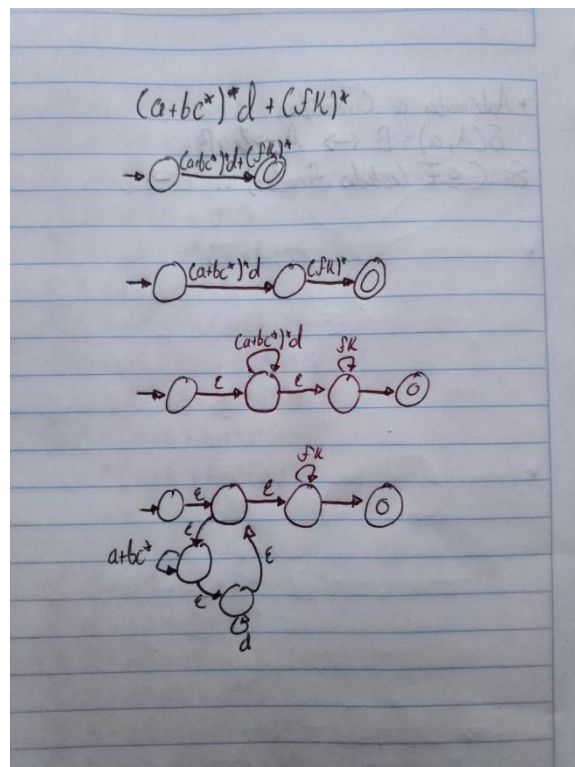 (a+bc*)*d + (fk)*
(a+bc*)*d+(fk)*
(a+bc*)*d (fk)*
(a+bc*)*d fk
ε ε
fk
ε ε
ε
a+bc* ε
ε
d